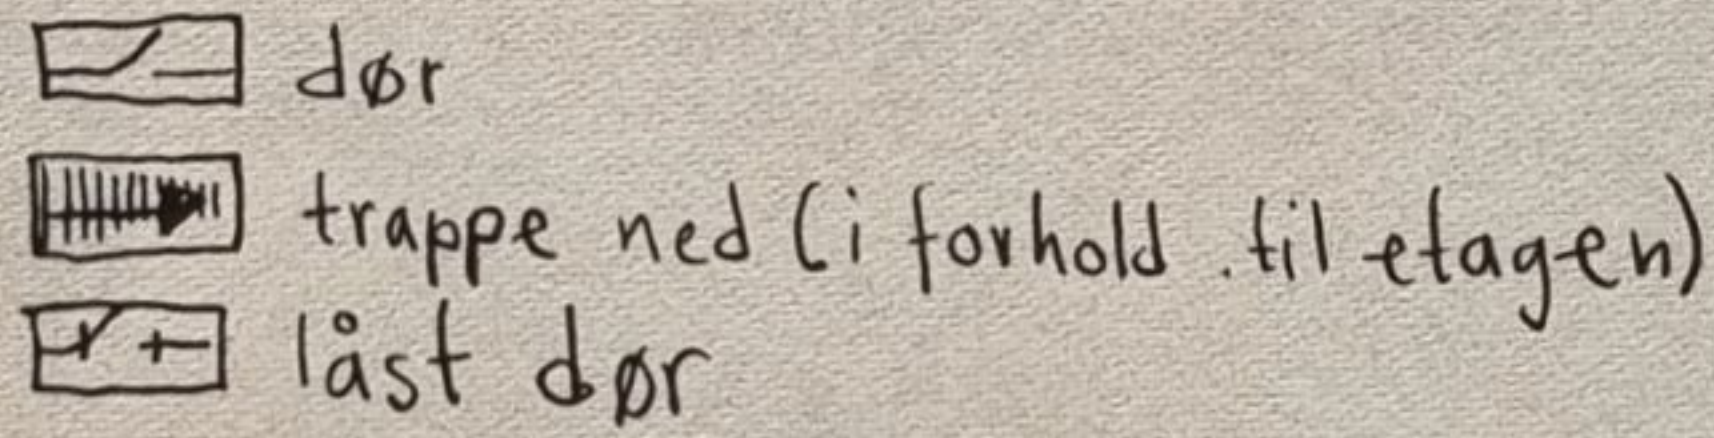 dør
trappe ned (i forhold til etagen)
låst dør